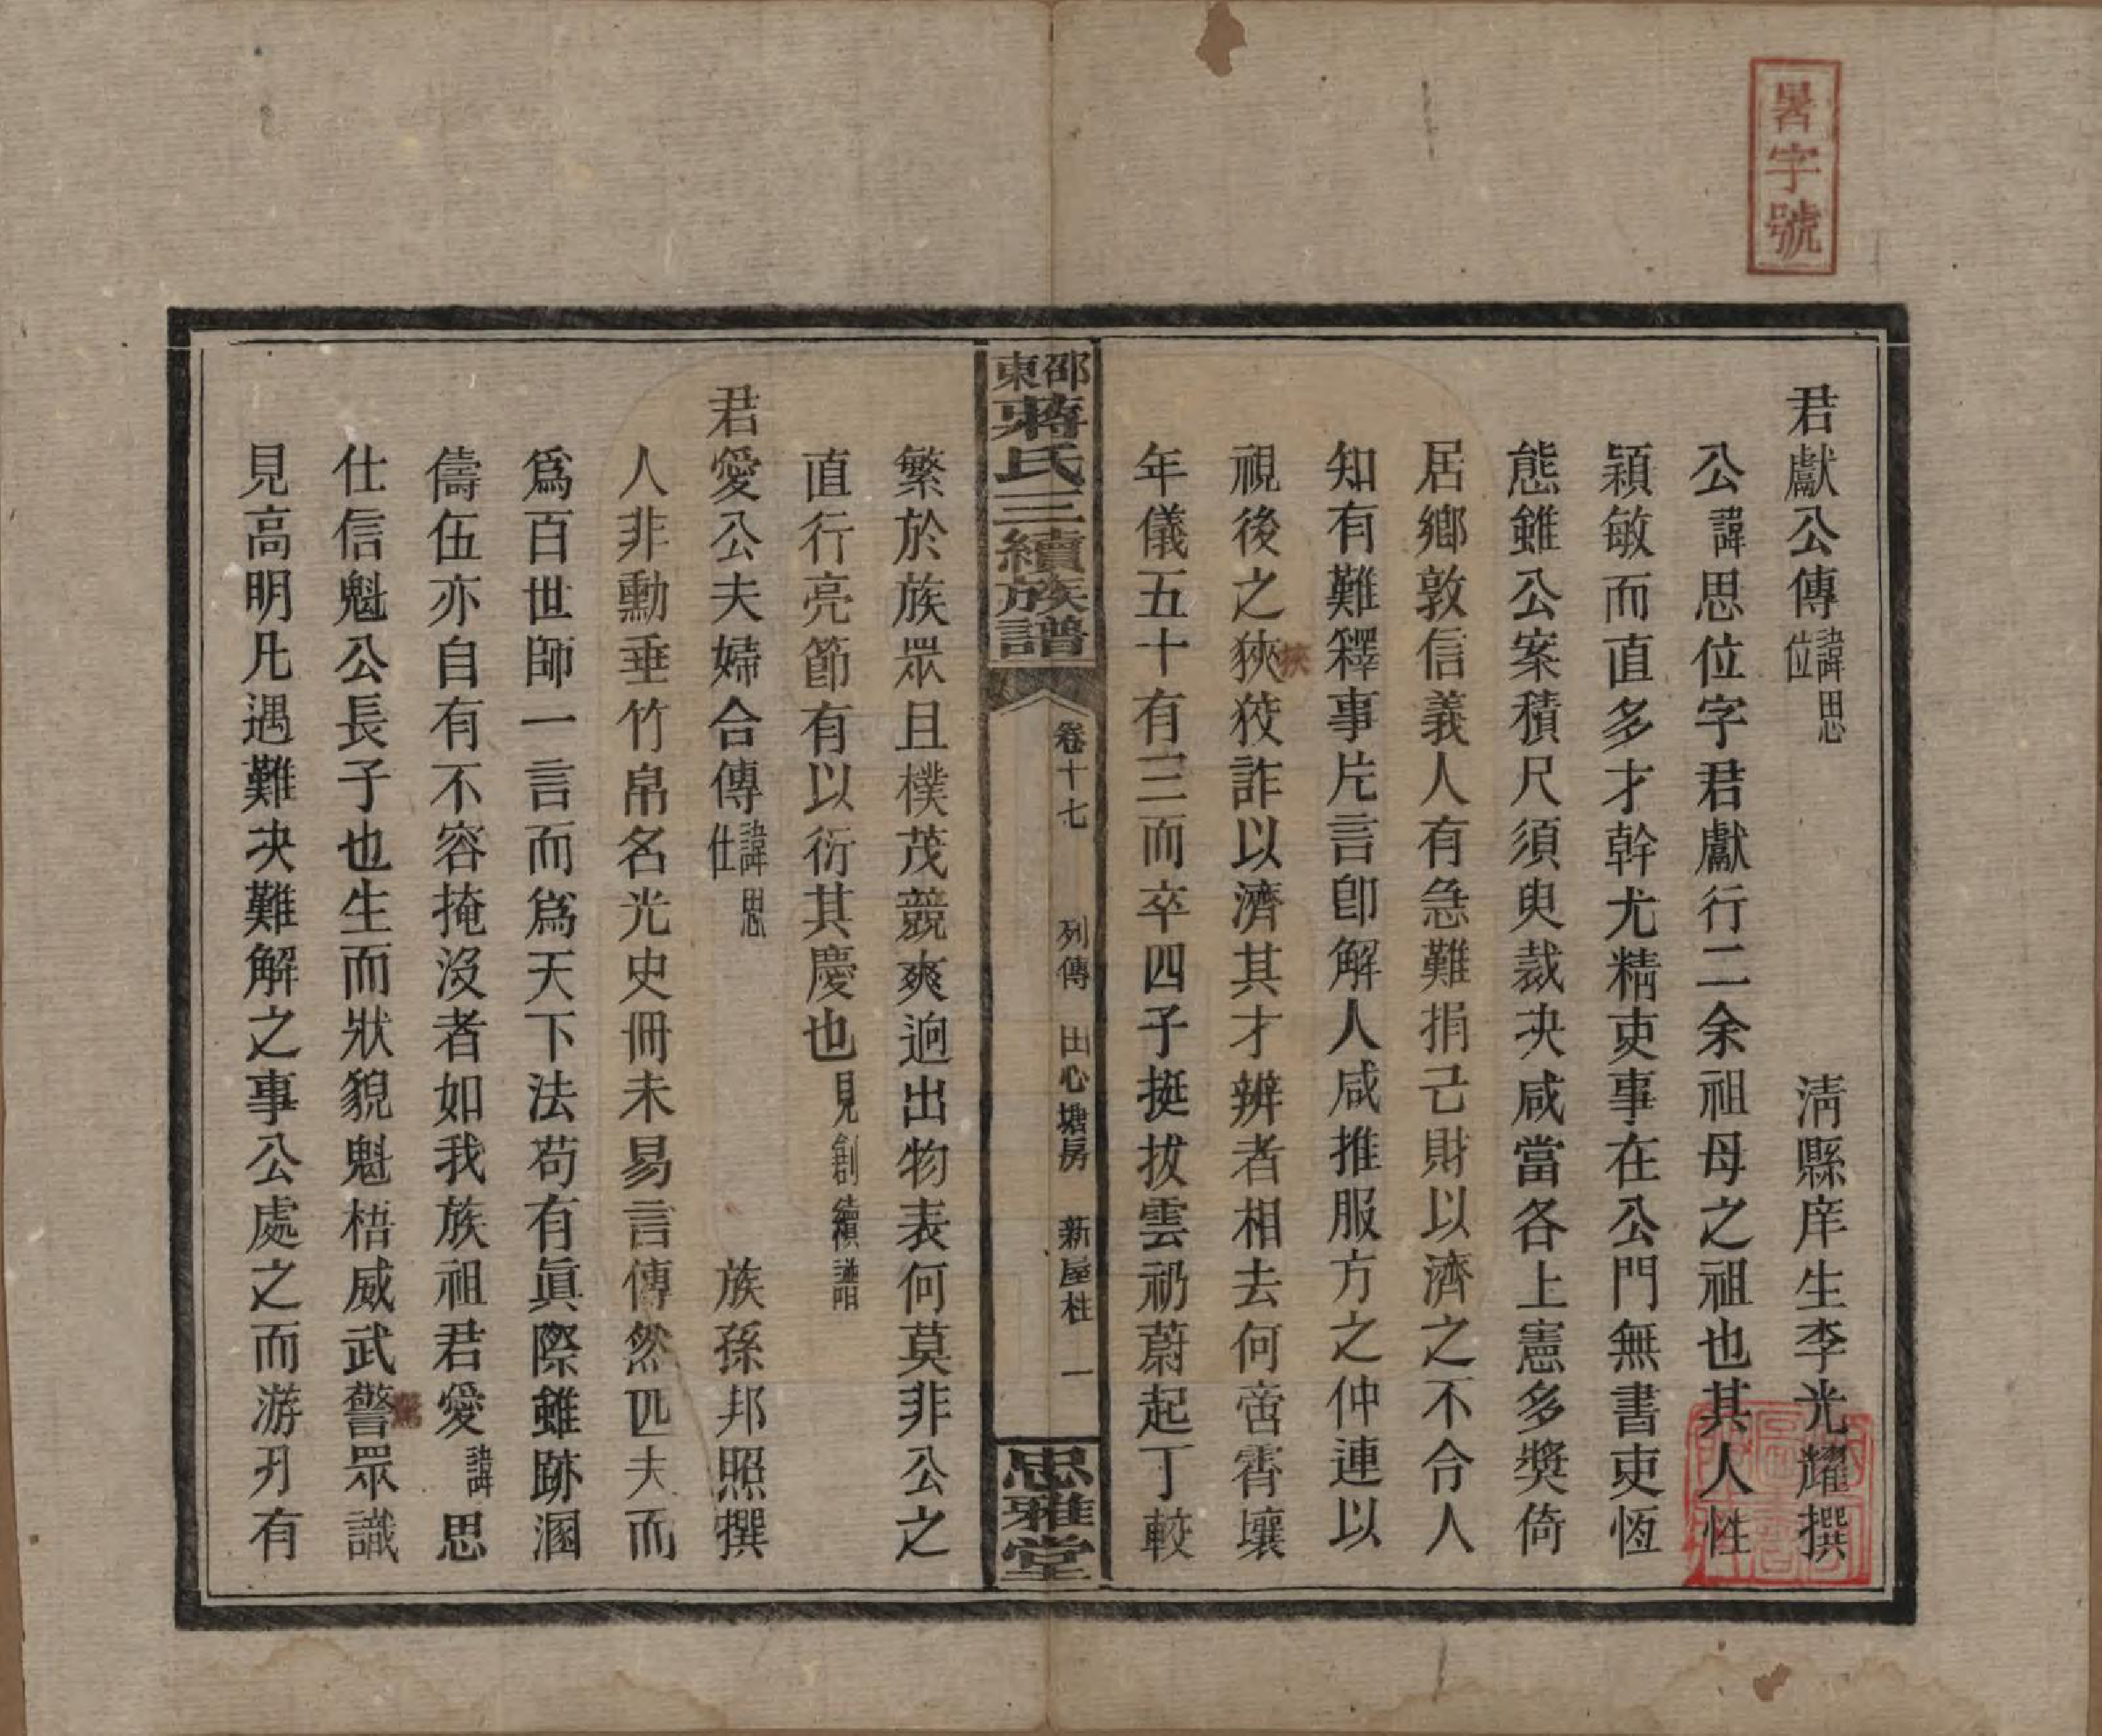 暑字號
君獻公傳諱思位
清縣庠生李光耀撰
公諱思位字君獻行二余祖母之祖也其人性
穎敏而直多才幹尤精吏事在公門無書吏恆
態雖公案積尺須臾裁决咸當各上憲多獎倚
居鄉敦信義人有急難捐己財以濟之不令人
知有難釋事片言卽解人咸推服方之仲連以
視後之狹狡詐以濟其才辨者相去何啻霄壤
挾
年儀五十有三而卒四子挺拔雲礽蔚起丁較
邵東蔣氏三續族譜
卷十七
列傳
田心塘房
新屋柱
一
思雅堂
繁於族眾且樸茂競爽迥出物表何莫非公之
直行亮節有以衍其慶也見創續譜
君愛公夫婦合傳諱思仕
族孫邦照撰
人非勳垂竹帛名光史冊未易言傳然匹夫而
爲百世師一言而爲天下法苟有眞際雖跡溷
儔伍亦自有不容掩沒者如我族祖君愛諱思
仕信魁公長子也生而狀貌魁梧威武警眾識
見高明凡遇難决難解之事公處之而游刃有